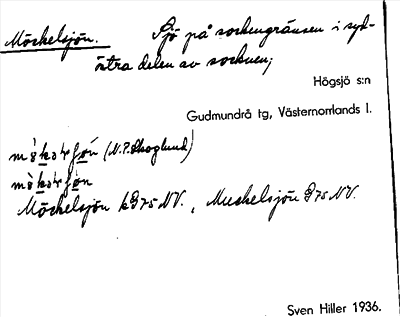 Möckelsjön. Sjö på sockengränsen i syd-
östra delen av socknen;
Högsjö s:n
Gudmundrå tg, Västernorrlands l.
(N.P. Skoglund)
Möckelsjön G 75 NV., Muckelsjön G 75 NV.
Sven Hiller 1936.